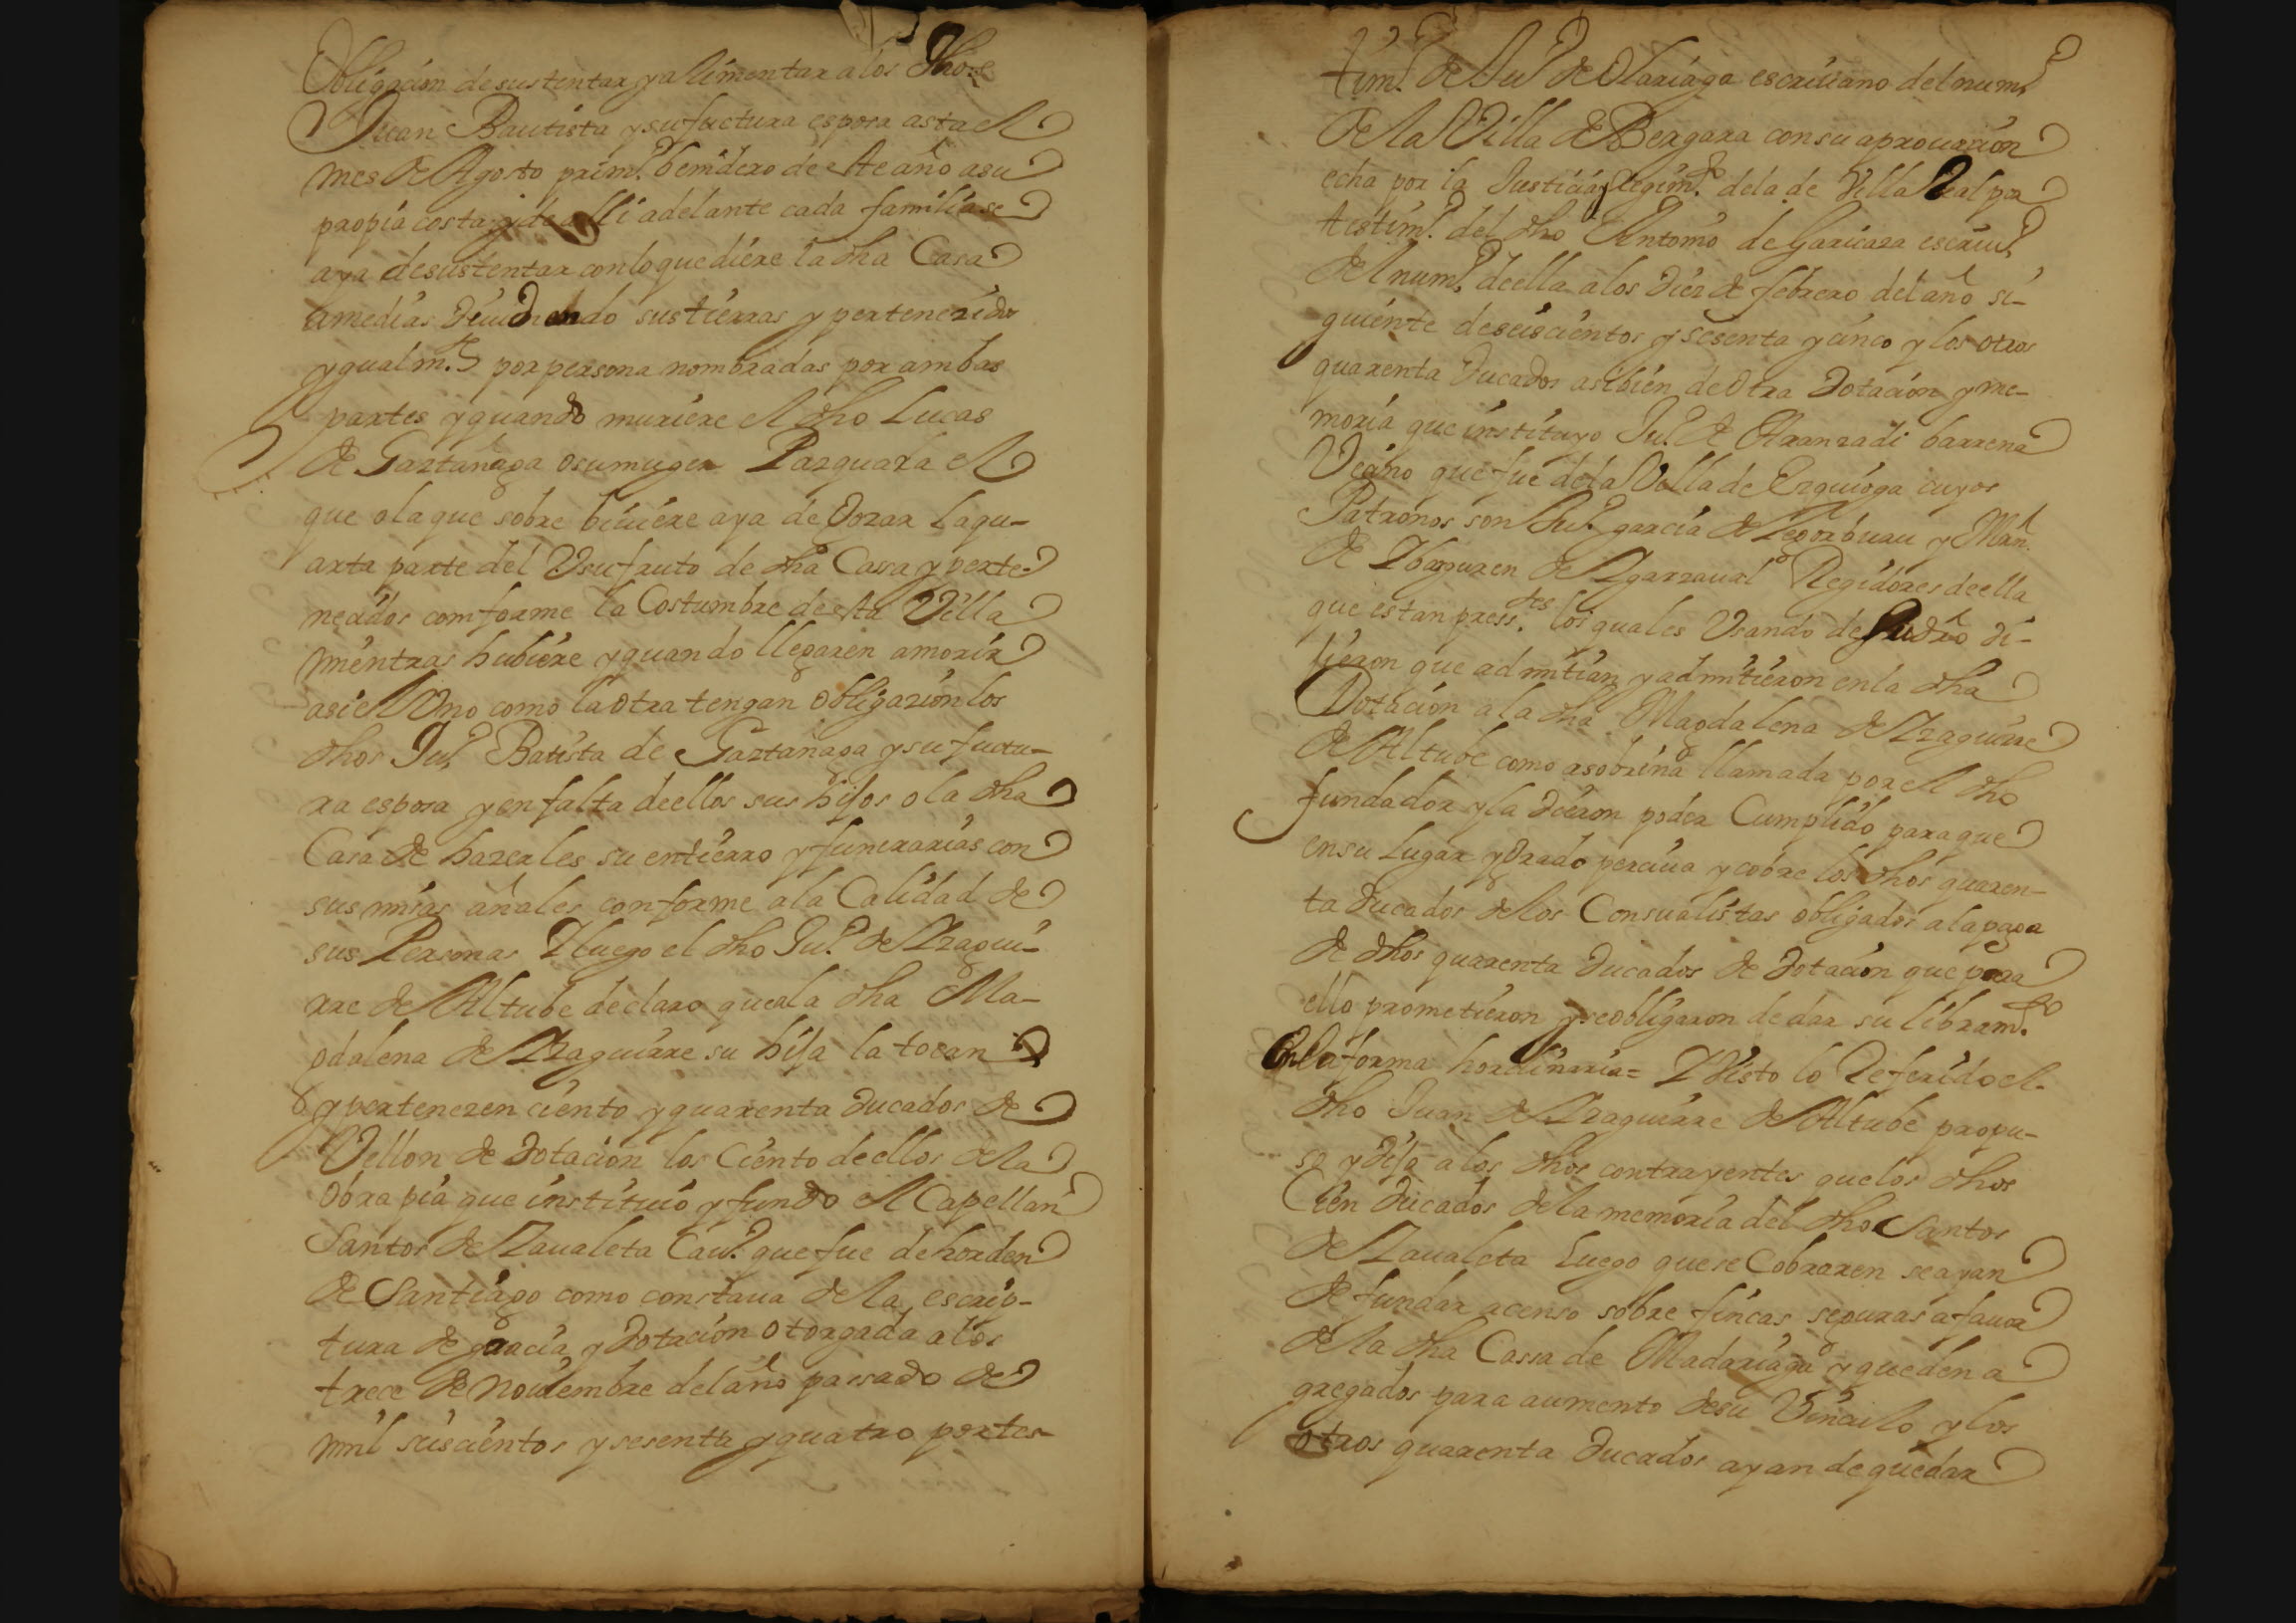 Obligacion de sustentar y alimentar a los dhos
Juan Bautista y su fuctura espossa asta el
mes de Agosto prim.º benidero de este año a su
propia costa y de alli adelante cada familia se
aya de sustentar con lo que diere la dha Cassa
a medias diuidiendo sus tierras y pertenecidos
ygualm.te por persona nombradas por ambas
partes y quando muriere el dho Lucas
de Gaztañaga o su muger Pazquala el
que o la que sobre biuiere aya de Gozar la qu-
arta parte del Vsufruto de dha Cassa y perte-
necidos comforme la Costumbre de esta Villa
mientras hubiere y quando llegaren a morir
asi el Vno como la otra tengan obligazion los
dhos Ju.º Batista de Gaztañaga y su fuctu-
ra esposa y en falta de ellos sus hijos o la dha
Casa de hazerles su entierro y funerarias con
sus misas añales conforme a la Calidad de
sus Personas Y luego el dho Ju.º de Yzagui-
rre de Altube declaro que a la dha Ma-
gdalena de Yzaguirre su hija la tocan
y pertenezen ciento y quarenta ducados de
Vellon de dotacion los Ciento de ellos de la
obra pia que instituio y fundo el Capellan
Santos de Zaualeta Cau.º que fue de horden
de Santiago como constaua de la escrip-
tura de gracia y dotacion otorgada a los
trece de Nouiembre del año passado de
mil seiscientos y sesenta y quatro por tes-
tim.º de Ju.º de Olariaga escriuano del num.º
de la Villa de Bergara con su aprouazion
echa por la Justicia y Regim.to de la de Villa Real por
testim.º del dho Antonio de Garicara escriu.º
del num.º de ella a los diez de febrero del año si-
guiente de seiscientos y sesenta y cinco y los otros
quarenta Ducados asi bien de otra Dotacion y me-
moria que instituyo Ju.º de Aranzadi barrena
Vecino que fue de la Villa de Ezquioga cuyos
Patronos son Ju.º garcia de Legorburu y Mrn.
de Ybarguren de Ygarzaual Regidores de ella
que estan press.tes los quales Vsando de su dro di-
jieron que admitian y admitieron en la dha
Dotacion a la dha Magdalena de Yzaguirre
de Altube como a sobrina llamada por el dho
fundador y la dieron poder Cumplido para que
en su lugar y Grado perciua y cobre los dhos quaren-
ta ducados de los Consualistas obligados a la paga
de dhos quarenta ducados de dotacion que para
ello prometieron y se obligaron de dar su libram.to
en la forma hordinaria = Y Visto lo Referido el
dho Juan de Yzaguirre de Altube propu-
so y dijo a los dhos contrayentes que los dhos
Cien ducados de la memoria del dho Santos
de Zaualeta luego que se Cobraren se ayan
de fundar a censo sobre fincas seguras a fauor
de la dha Cassa de Madariaga y queden a
gregados para aumento de su Vinculo y los
otros quarenta Ducados ayan de quedar